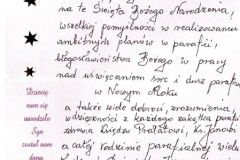 na te Święta Bożego Narodzenia,
wszelkiej pomyślności w realizowaniu
ambitnych planów w parafii,
błogosławieństwa Bożego w pracy
nad uświęcaniem serc i dusz parafian
w Nowym Roku
a także wiele dobroci, zrozumienia,
wdzięczności z każdego zakątka parafii
zdrowia Księdzu Prałatowi, Ks.
a całej rodzinie parafialnej wiele
Dziecię
nam się
narodziło
Syn
został nam
dany